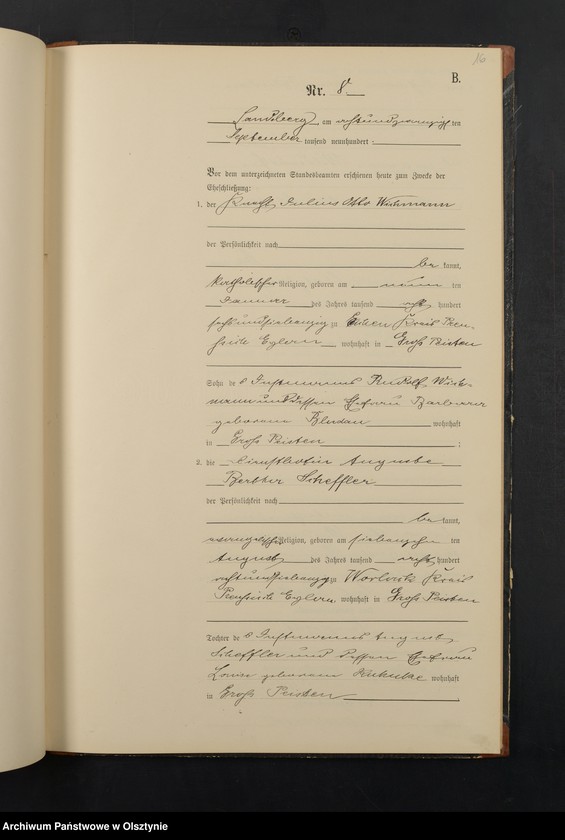 16
B.
Nr. 8
Landsberg am achtundzwanzigsten
September tausend neunhundert
Vor dem unterzeichneten Standesbeamten erschienen heute zum Zwecke der
Eheschließung:
1. der Knecht Julius Otto Wichmann
der Persönlichkeit nach
be kannt,
katholischer Religion, geboren am neun ten
Januar des Jahres tausend acht hundert
sechsundsiebenzig zu Eichen Kreis Preu-
ssisch Eylau wohnhaft in Groß Peisten
Sohn des Instmanns Rudolf Wich-
mann und dessen Ehefrau Barbara
geborene Bludau wohnhaft
in Groß Peisten ;
2. die Dienstbotin Auguste
Bertha Scheffler
der Persönlichkeit nach
be kannt,
evangelischer Religion, geboren am siebenzehn ten
August des Jahres tausend acht hundert
achtundsiebenzig zu Worlack Kreis
Preussisch Eylau wohnhaft in Groß Peisten
Tochter des Instmanns August
Scheffler und dessen Ehefrau
Louise geborenen wohnhaft
in Groß Peisten
Archiwum Państwowe w Olsztynie